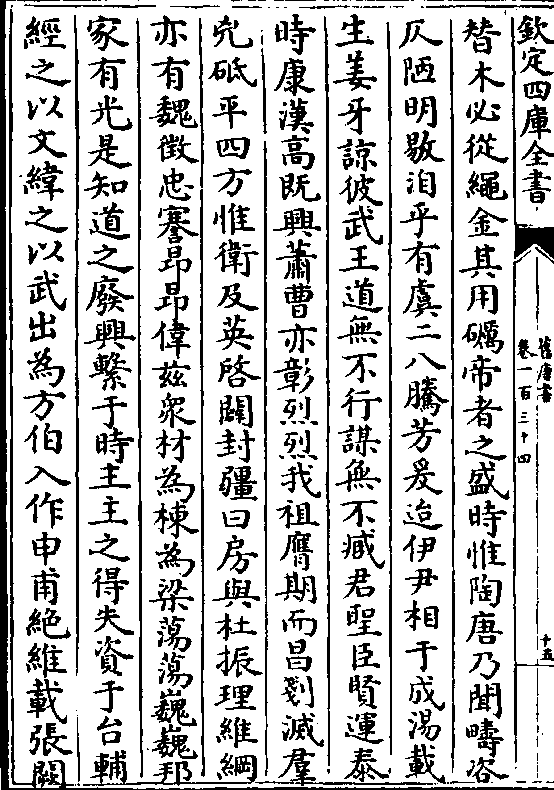 欽定四庫全書
舊唐書
卷一百三十四
十五
替木必從繩金其用礪帝者之盛時惟陶唐乃聞疇咨
仄陋明敭洎乎有虞二八騰芳爰迨伊尹相于成湯載
生姜牙諒彼武王道無不行謀無不臧君聖臣賢運泰
時康漢高既興蕭曹亦彰烈烈我祖膺期而昌剗滅羣
兇砥平四方惟衛及英啓闢封疆曰房與杜振理維綱
亦有魏徵忠謇昂昂偉茲衆材為棟為梁蕩蕩巍巍邦
家有光是知道之廢興繫于時主主之得失資于台輔
經之以文緯之以武出為方伯入作申甫絶維載張闕